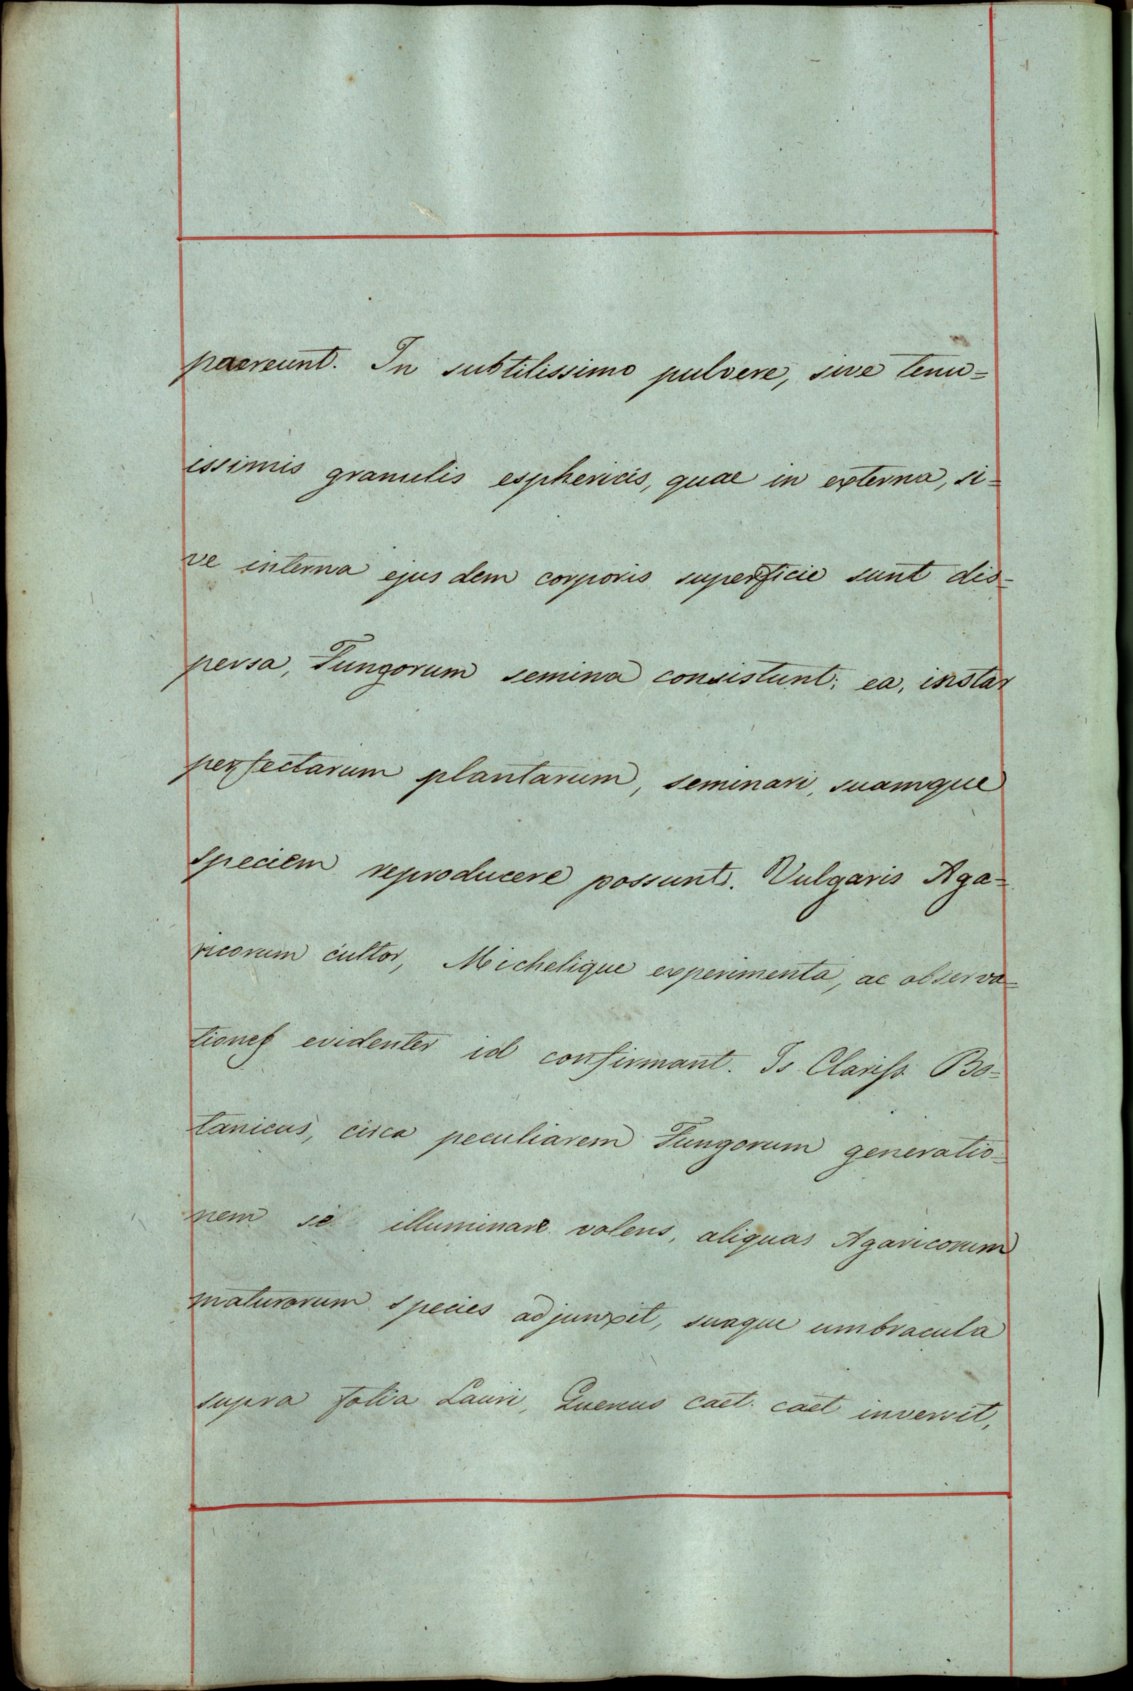 paereunt. In subtilissimo pulvere, sive tenu=
issimis granulis esphericis, quae in externa, si=
ve interna ejusdem corporis superficie sunt dis=
persa, Fungorum semina consistunt; ea, instar
perfectarum plantarum, seminari, suamque
speciem reproducere possunt. Vulgaris Aga=
ricorum cultor, Michelique experimenta, ac observa=
tiones evidenter id confirmant. Is Clariss. Bo=
tanicus, circa peculiarem Fungorum generatio=
nem se illuminare volens, aliquas Agaricorum
maturorum species adjunxit, suaque umbracula
supra folia Lauri, caet. caet